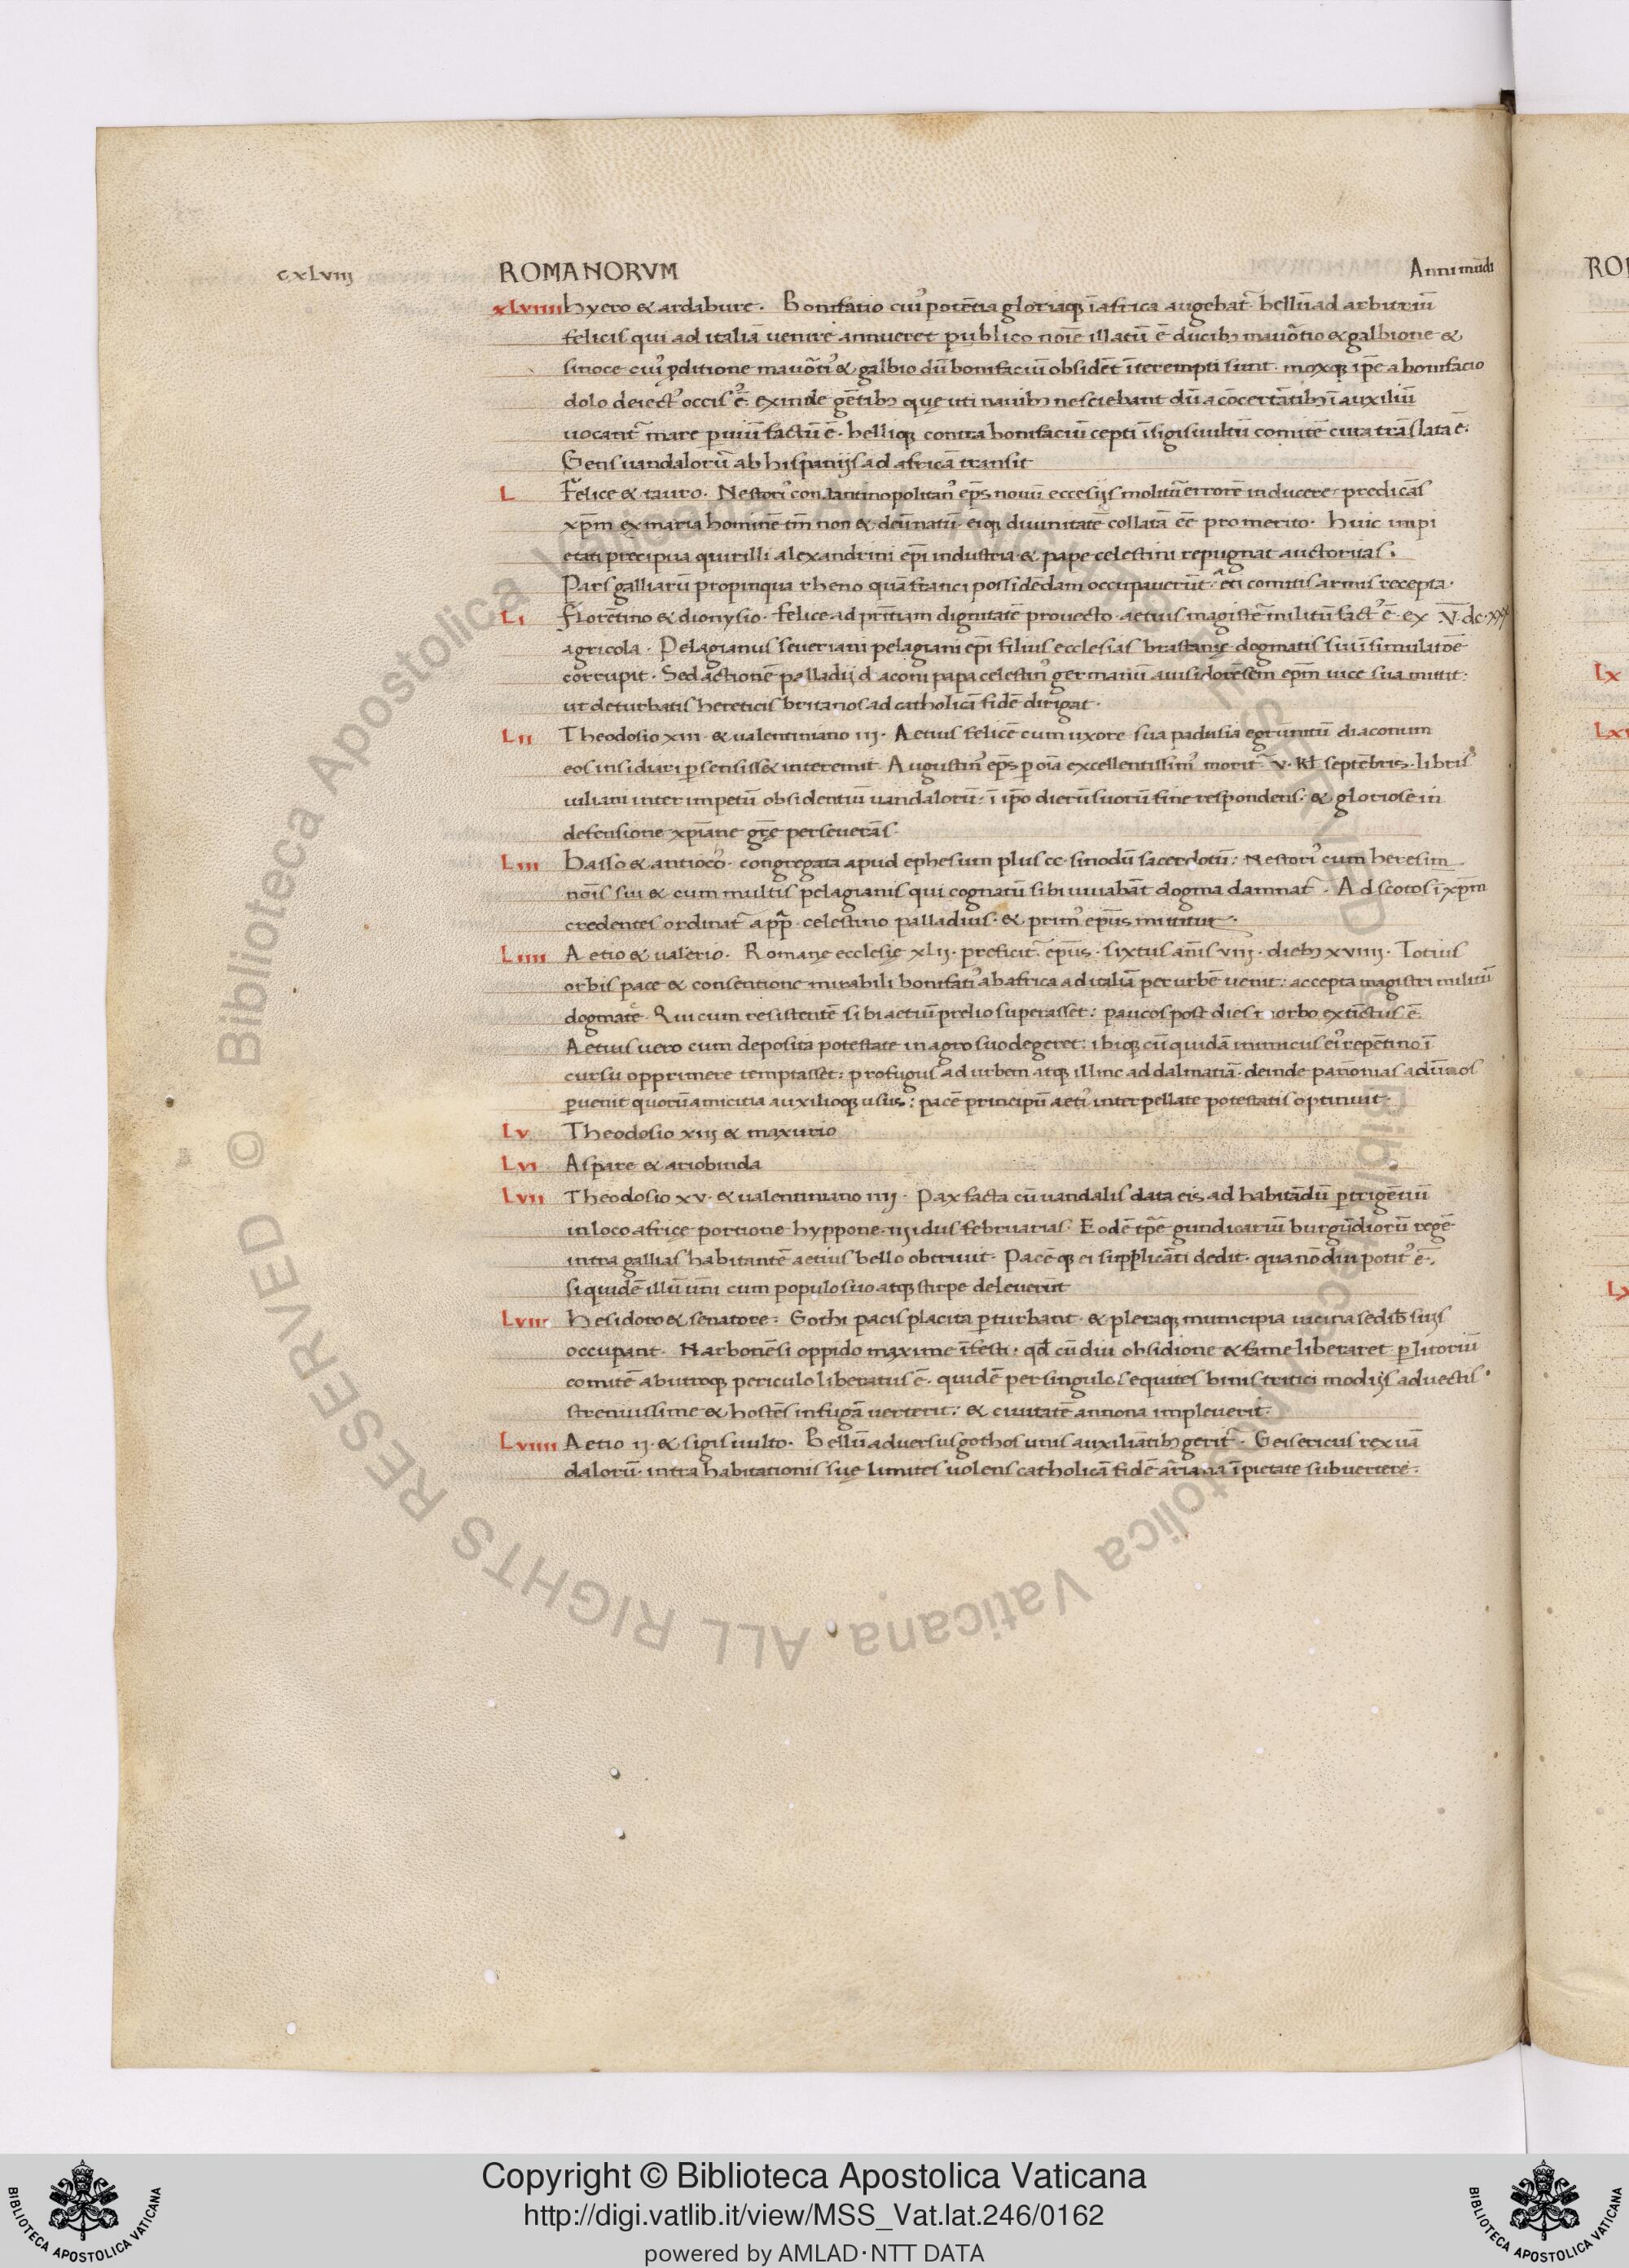 cxLviij
ROMANORVM
Anni mūdi
xLviiii hyero & ardabure. Bonifatio cui᾽ potētia gloriaq; ī africa augebat᷑ bellū ad arbitriū
felicis qui ad italiā venire annueret publico noīe illatū ē ducib; mauōtio & galbione &
sinoce cui᾽ ꝑditione mauōti᾽ & galbio dū bonifaciū obsidēt īterempti sunt. moxq; ip̄e a bonifacio
dolo deiect᾽ occis᾽ ē. exinde gētib; quę uti navib; nesciebant dū a cōcertātib; ī auxiliū
uocant᷑ mare ꝑuiū factū ē. belliq; contra bonifaciū cepti ī sigisuultū comitē cura trāslata ē.
Gens uandalorū ab hispanijs ad africā transit
L Felice & tauro. Nestori᾽ constantinopolitan᾽ ep̄s novū eccesijs molitū errorē inducere. predicās
xp̄m ex maria hominē tm̄ non & deū natū. eiq; divinitatē collatā ēē pro merito. huic impi
etati precipua quirilli alexandrini ep̄i industria & pape celestini repugnat auctoritas.
Pars galliarū propinqua rheno quā franci possidēdam occupaverūt. aeti comitis armis recepta.
Li Florētino & dionysio. Felice ad prīciam dignitatē prouecto. aetius magister militū fact᾽ ē. ex V̄. dc. xxx
agricola. Pelagianus seueriani pelagiani ep̄i filius ecclesias brastanię dogmatis sui īsimulatōe
corrupit. Sed actionē palladij diaconi papa celestin᾽ germanū auisidorēsem ep̄m vice sua mittit.
ut deturbatis hereticis britanos ad catholicā fidē dirigat.
Lii Theodosio xiii. & ualentiniano iii. Aetius felicē cum uxore sua padusia & grūnitū diaconum
eos insidiari ꝑsensisset interemit. Augustin᾽ ep̄s ꝑ oīa excellentissim᾽ morit᷑ v. kl septēbris. libris
iuliani inter impetū obsidentiū uandalorū. ī ip̄o dierū suorū fine respondens. & gloriose in
defensione xp̄iane gr̄e perseuerās.
Liii basso & antioco. congregata apud ephesum plus cc. sinodū sacerdotū. Nestori᾽ cum heresim
noīs sui & cum multis pelagianis qui cognatū sibi iuuabāt dogma damnat᷑. Ad scotos ī xp̄m
credentes ordinat᷑ a pp̄. celestino palladius. & prim᾽ ep̄us mittitur.
Liiii Aetio & valerio. Romanę ecclesię xlij. preficit᷑ ep̄us. sixtus an̄is viij. dieb; xviiij. Totius
orbis pace & consentione mirabili bonifati᾽ ab africa ad italiā per urbē uenit: accepta magistri militū
dogmate. Qui cum resistentē sibi aetiū prelio superasset: paucos post dies morbo extīctus ē.
Aetius uero cum deposita potestate in agro suo degeret: ibiq; cū quidā inimicus ei᾽ repētino ī
cursu opprimere temptasset: profugus ad urbem atq; illinc ad dalmatiā. deinde pan̄onias ad ūnos
ꝑuenit quorū amicitia auxilioq; usus: pacē principū aeti᾽ interpellate potestatis optinuit.
Lv Theodosio xiiij & maximo
Lvi Aspare & ariobinda
Lvii Theodosio xv. & ualentiniano iiij. Pax facta cū uandalis data eis ad habitādū ꝑ trigētiū
in loco africę portione hyppone. iij idus februarias. Eodē tp̄e gundicariū burgūdiorū regē
intra gallias habitantē aetius bello obtriuit. Pacēq; ei supplicāti dedit. qua nō diu potit᾽ ē.
siquidē illū ūni cum populo suo atq; stirpe deleuerūt
Lviii hesidoro & senatore. Gothi pacis placita ꝑturbant. & pleraq; municipia uicina sedib; suis
occupant. Narbonēsi oppido maxime īfesti. qd cū diu obsidione & fame liberaret ꝑ litoriū
comitē ab utroq; periculo liberatus ē. quidē per singulos equites binis tritici modijs aduectis
strenuissime & hostēs in fugā uerterit: & ciuitatē annona impleuerit.
Lviiii Aetio ij. & sigisuulto. Bellū aduersus gothos unis auxiliātib; gerit᷑. Geisericus rex uā
dalorū. intra habitationis suę limites uolens catholicā fidē arriana īpietate subuertere.
Copyright © Biblioteca Apostolica Vaticana
http://digi.vatlib.it/view/MSS_Vat.lat.246/0162
powered by AMLAD·NTT DATA